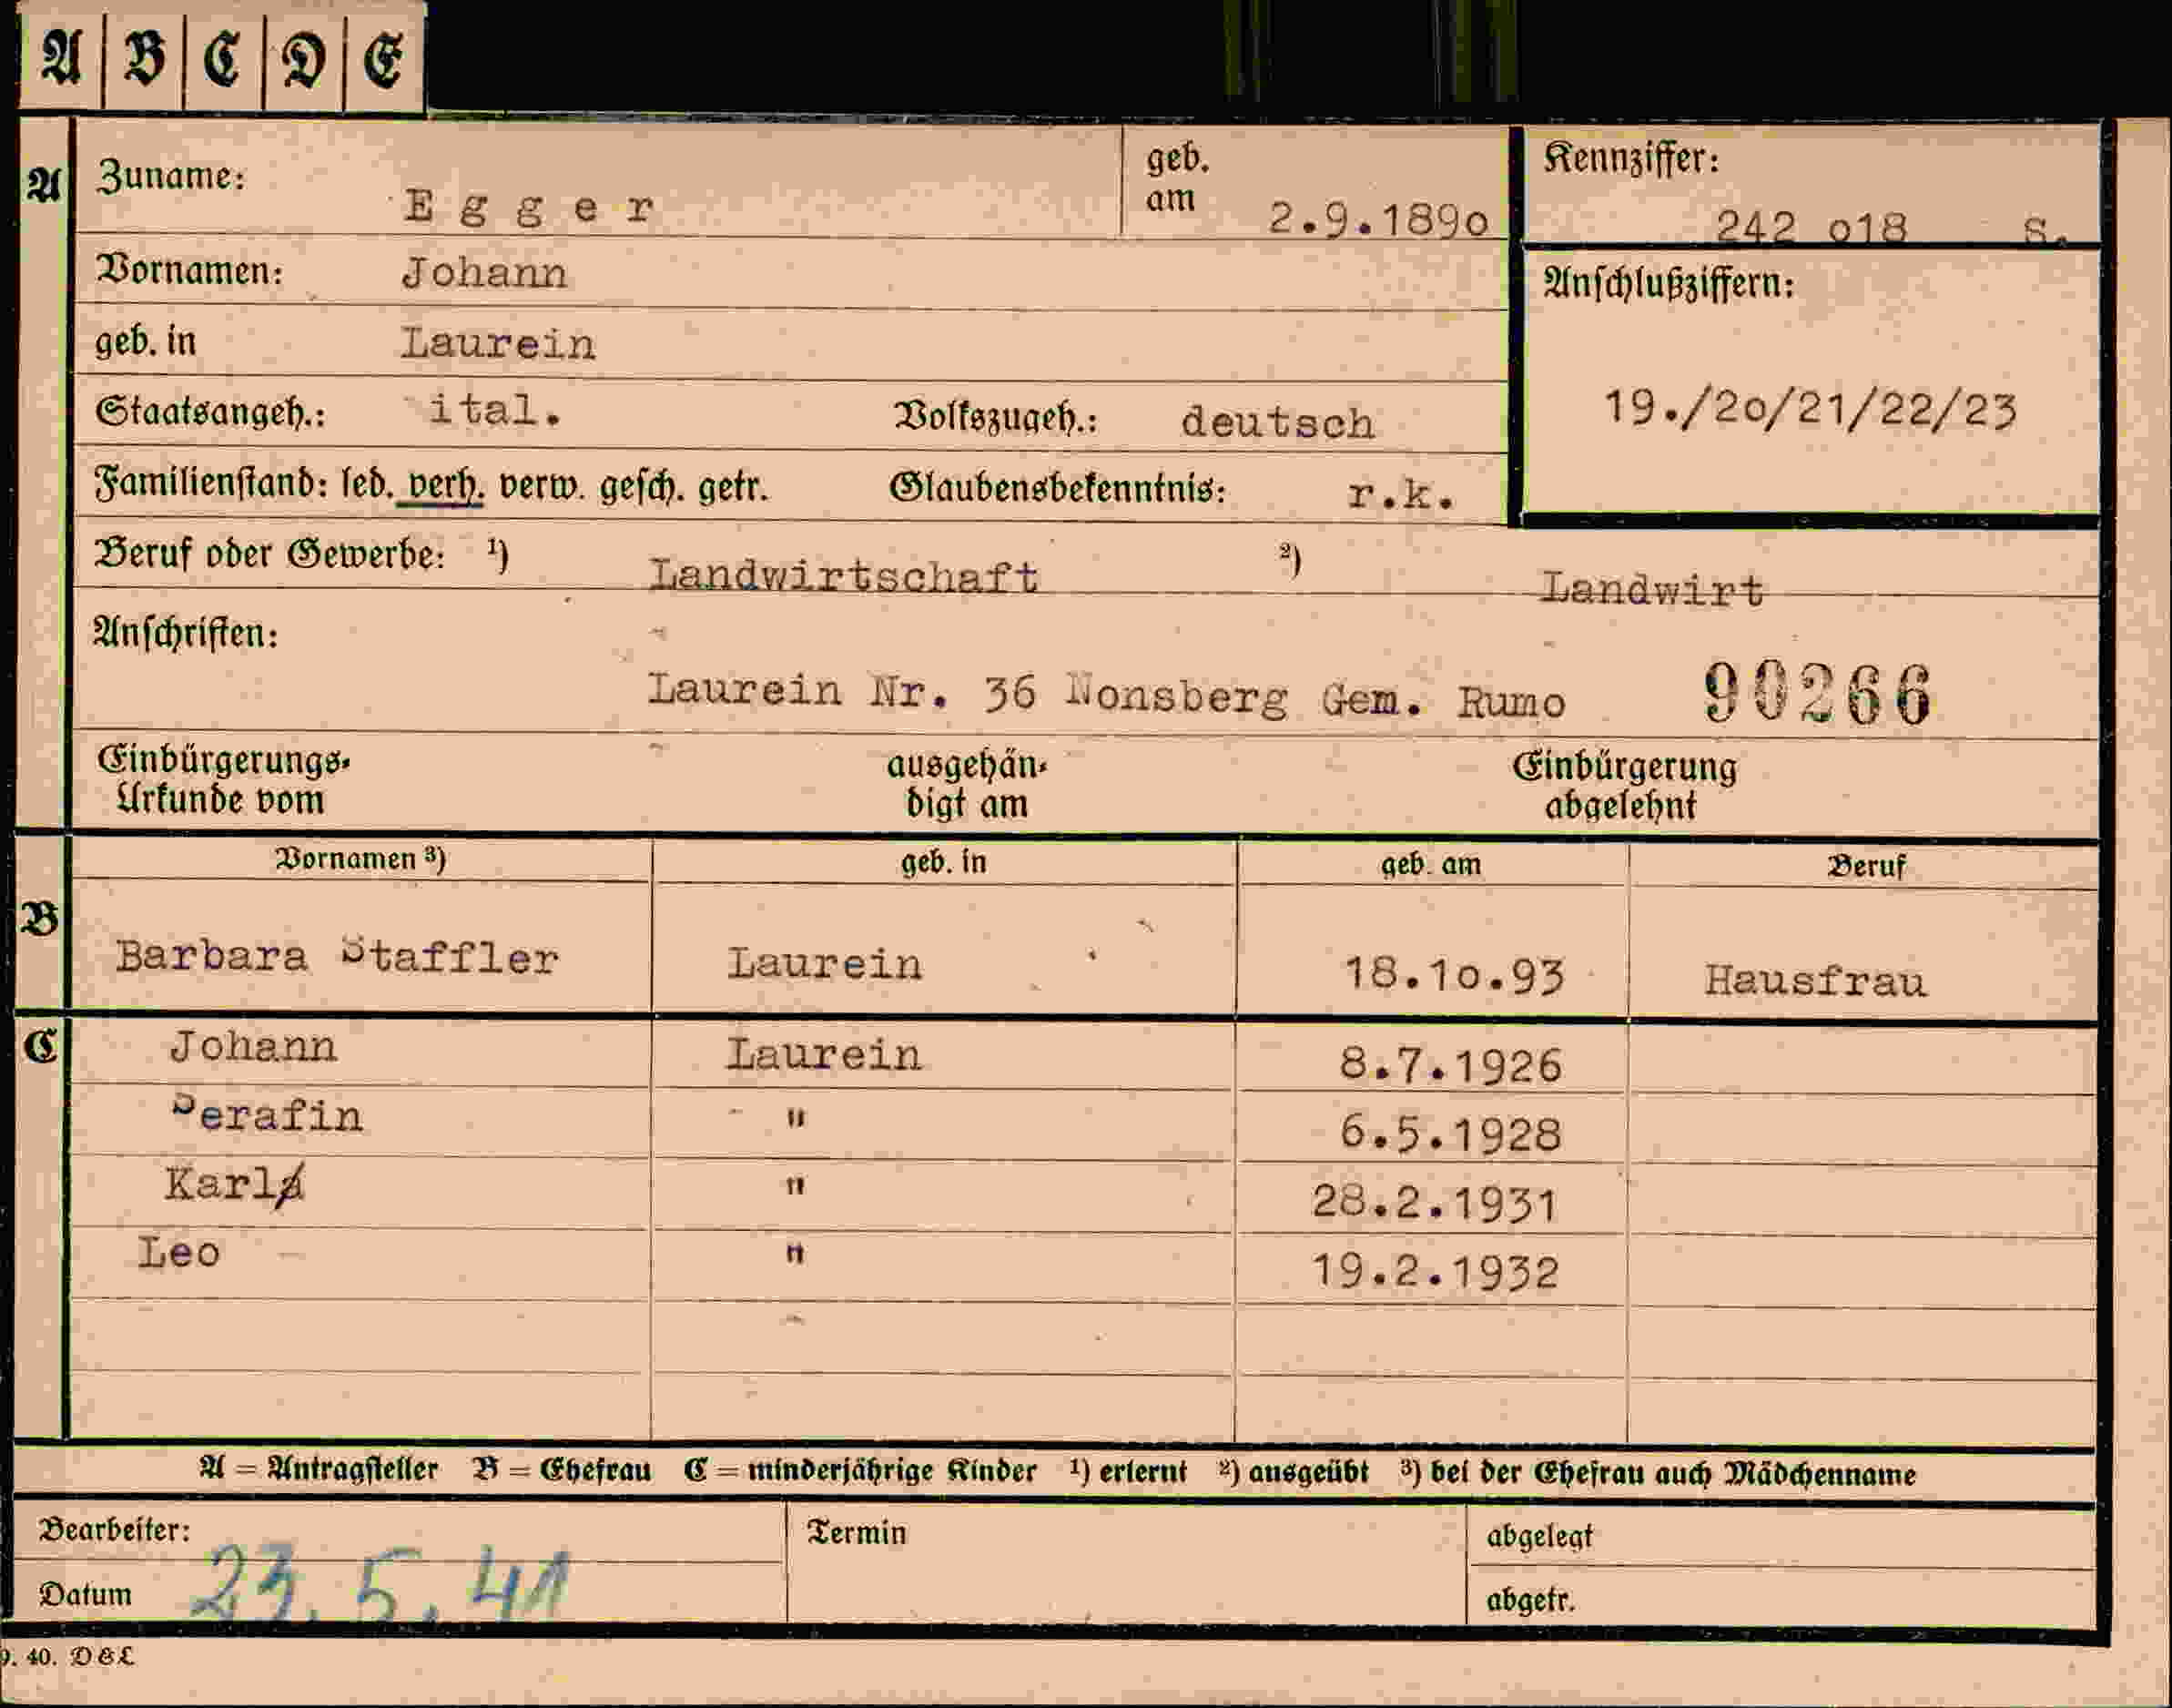 A B C D E
A Zuname: Egger geb. am 2.9.1890 Kennziffer: 242 o18 S.
Vornamen: Johann Anschlußziffern:
geb. in Laurein
Staatsangeh.: ital. Volkszugeh.: deutsch 19./2o/21/22/23
Familienstand: led. verh. verw. gesch. getr. Glaubensbekenntnis: r.k.
Beruf oder Gewerbe: ¹) Landwirtschaft ²) Landwirt
Anschriften:
Laurein Nr. 36 Nonsberg Gem. Rumo 90266
Einbürgerungs- ausgehän- Einbürgerung
Urkunde vom digt am abgelehnt
Vornamen ³) geb. in geb. am Beruf
B Barbara Staffler Laurein 18.1o.93 Hausfrau
C Johann Laurein 8.7.1926
Serafin " 6.5.1928
Karl " 28.2.1931
Leo " 19.2.1932
A = Antragsteller B = Ehefrau C = minderjährige Kinder ¹) erlernt ²) ausgeübt ³) bei der Ehefrau auch Mädchenname
Bearbeiter: Termin abgelegt
Datum 23.5.41 abgetr.
9. 40. D&L